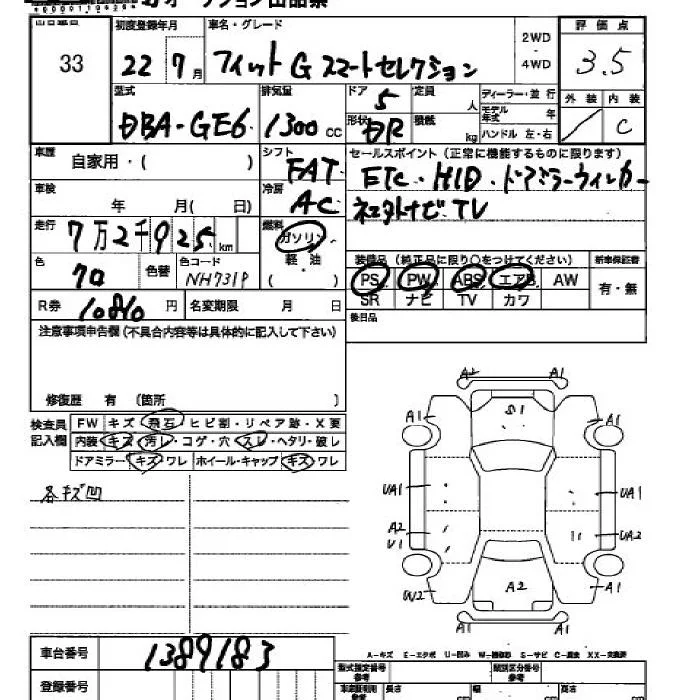 オークション出品票
33
初度登録年月
22 7月
車名・グレード
フィット G スマートセレクション
2WD
・
4WD
評価点
3.5
外装 内装
C
型式
DBA-GE6
排気量
1300 cc
ドア
5
形状
定員
人
積載
kg
ディーラー・並行
モデル年式 年
ハンドル 左・右
車歴
自家用・( )
シフト
FAT
冷房
AC
車検
年 月( 日)
走行
7万2千925km
燃料
ガソリン
軽・油
( )
色
クロ
色替
色コード
NH731P
R券
10810円
名変期限 月 日
セールスポイント(正常に機能するものに限ります)
ETC・HID・ドアミラーウィンカー
社外ナビ TV
装備品(純正品に限り○をつけてください)
PS PW ABS エアB AW
SR ナビ TV カワ
新車保証書
有・無
後日品
注意事項申告欄(不具合内容等は具体的に記入して下さい)
修復歴 有 (箇所 )
検査員記入欄
FW キズ・飛石・ヒビ割・リペア跡・X要
内装 キズ・汚レ・コゲ・穴・スレ・ヘタリ・破レ
ドアミラー キズ・ワレ ホイール・キャップ キズ・ワレ
各キズ凹
A2 A1
A1 S1 A1
UA1 UA1
A2 UA2
U1
W2 A2 A1
A1
A-キズ E-エクボ U-凹み W-補修跡 S-サビ C-腐食 XX-交換済
車台番号
1389183
登録番号
型式指定番号
類別区分番号
長さ
幅
高さ